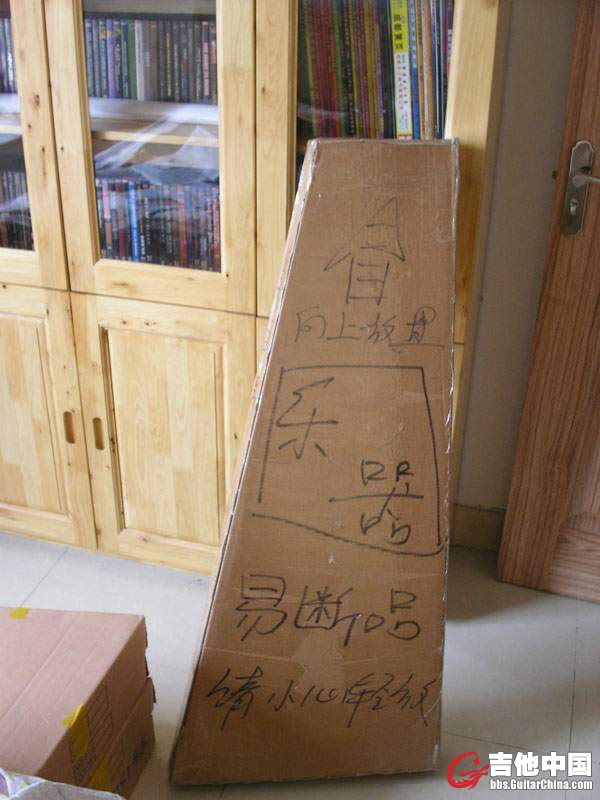 向上放置
乐
器
易断品
请小心轻放
吉他中国
bbs.GuitarChina.com